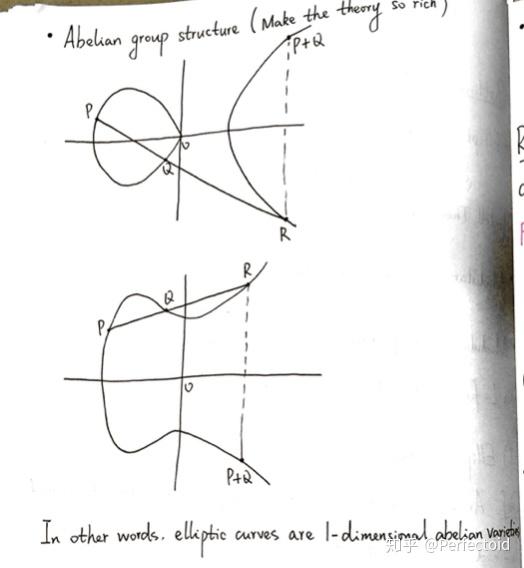 • Abelian group structure (Make the theory so rich)
P+Q
P
O
Q
R
R
Q
P
O
P+Q
In other words. elliptic curves are 1-dimensional abelian varieties
知乎 @Perfectoid